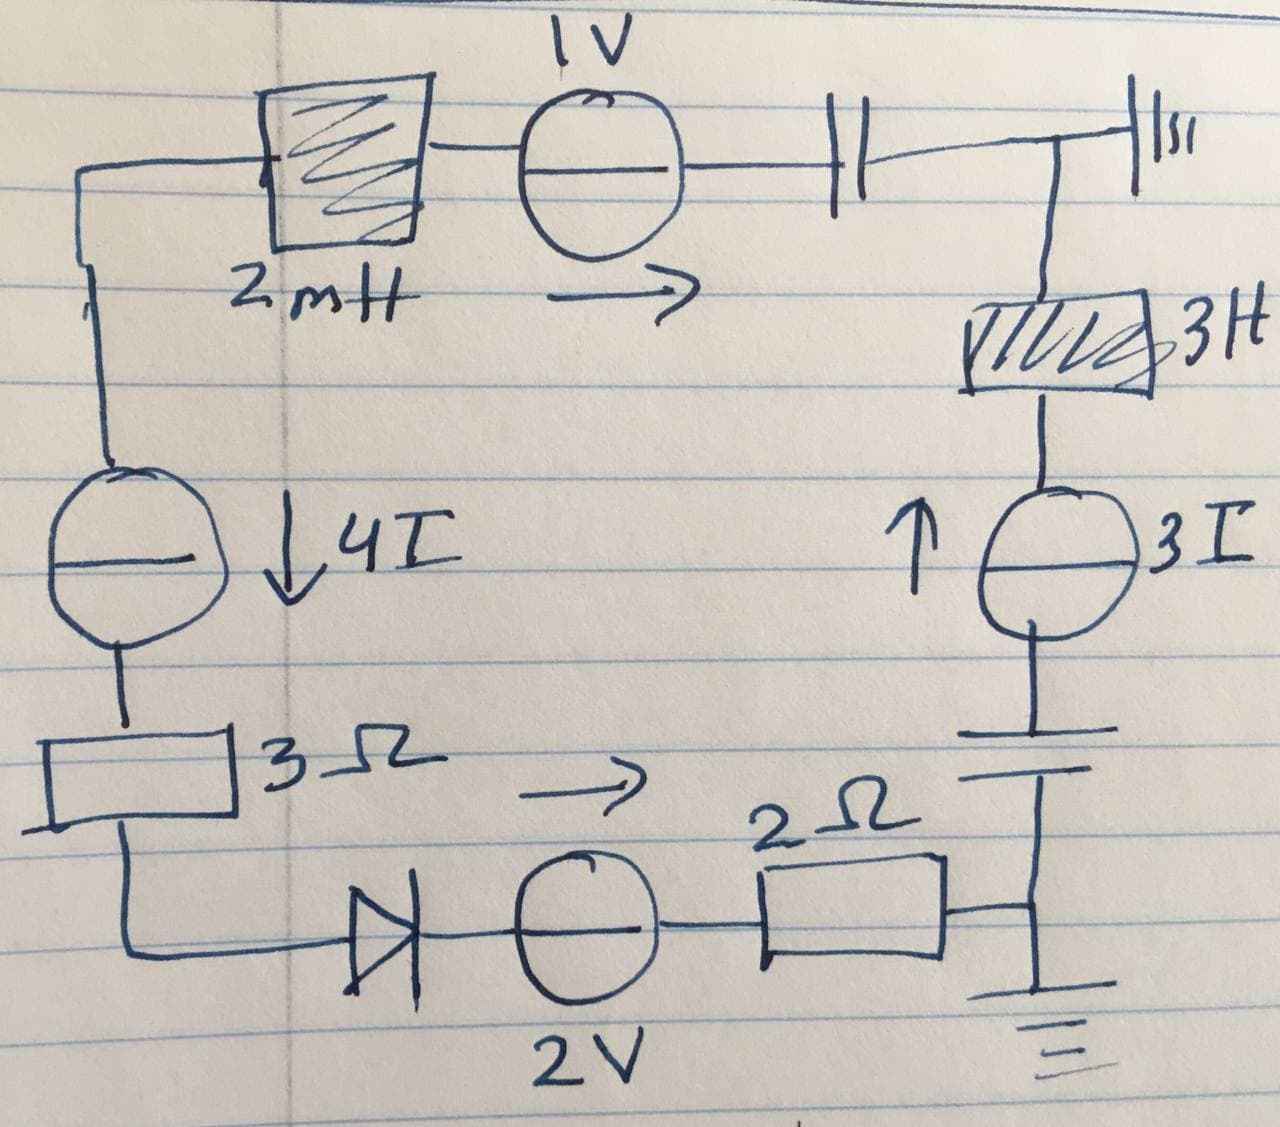 1V
2mH
3H
4I
3I
3Ω
2Ω
2V